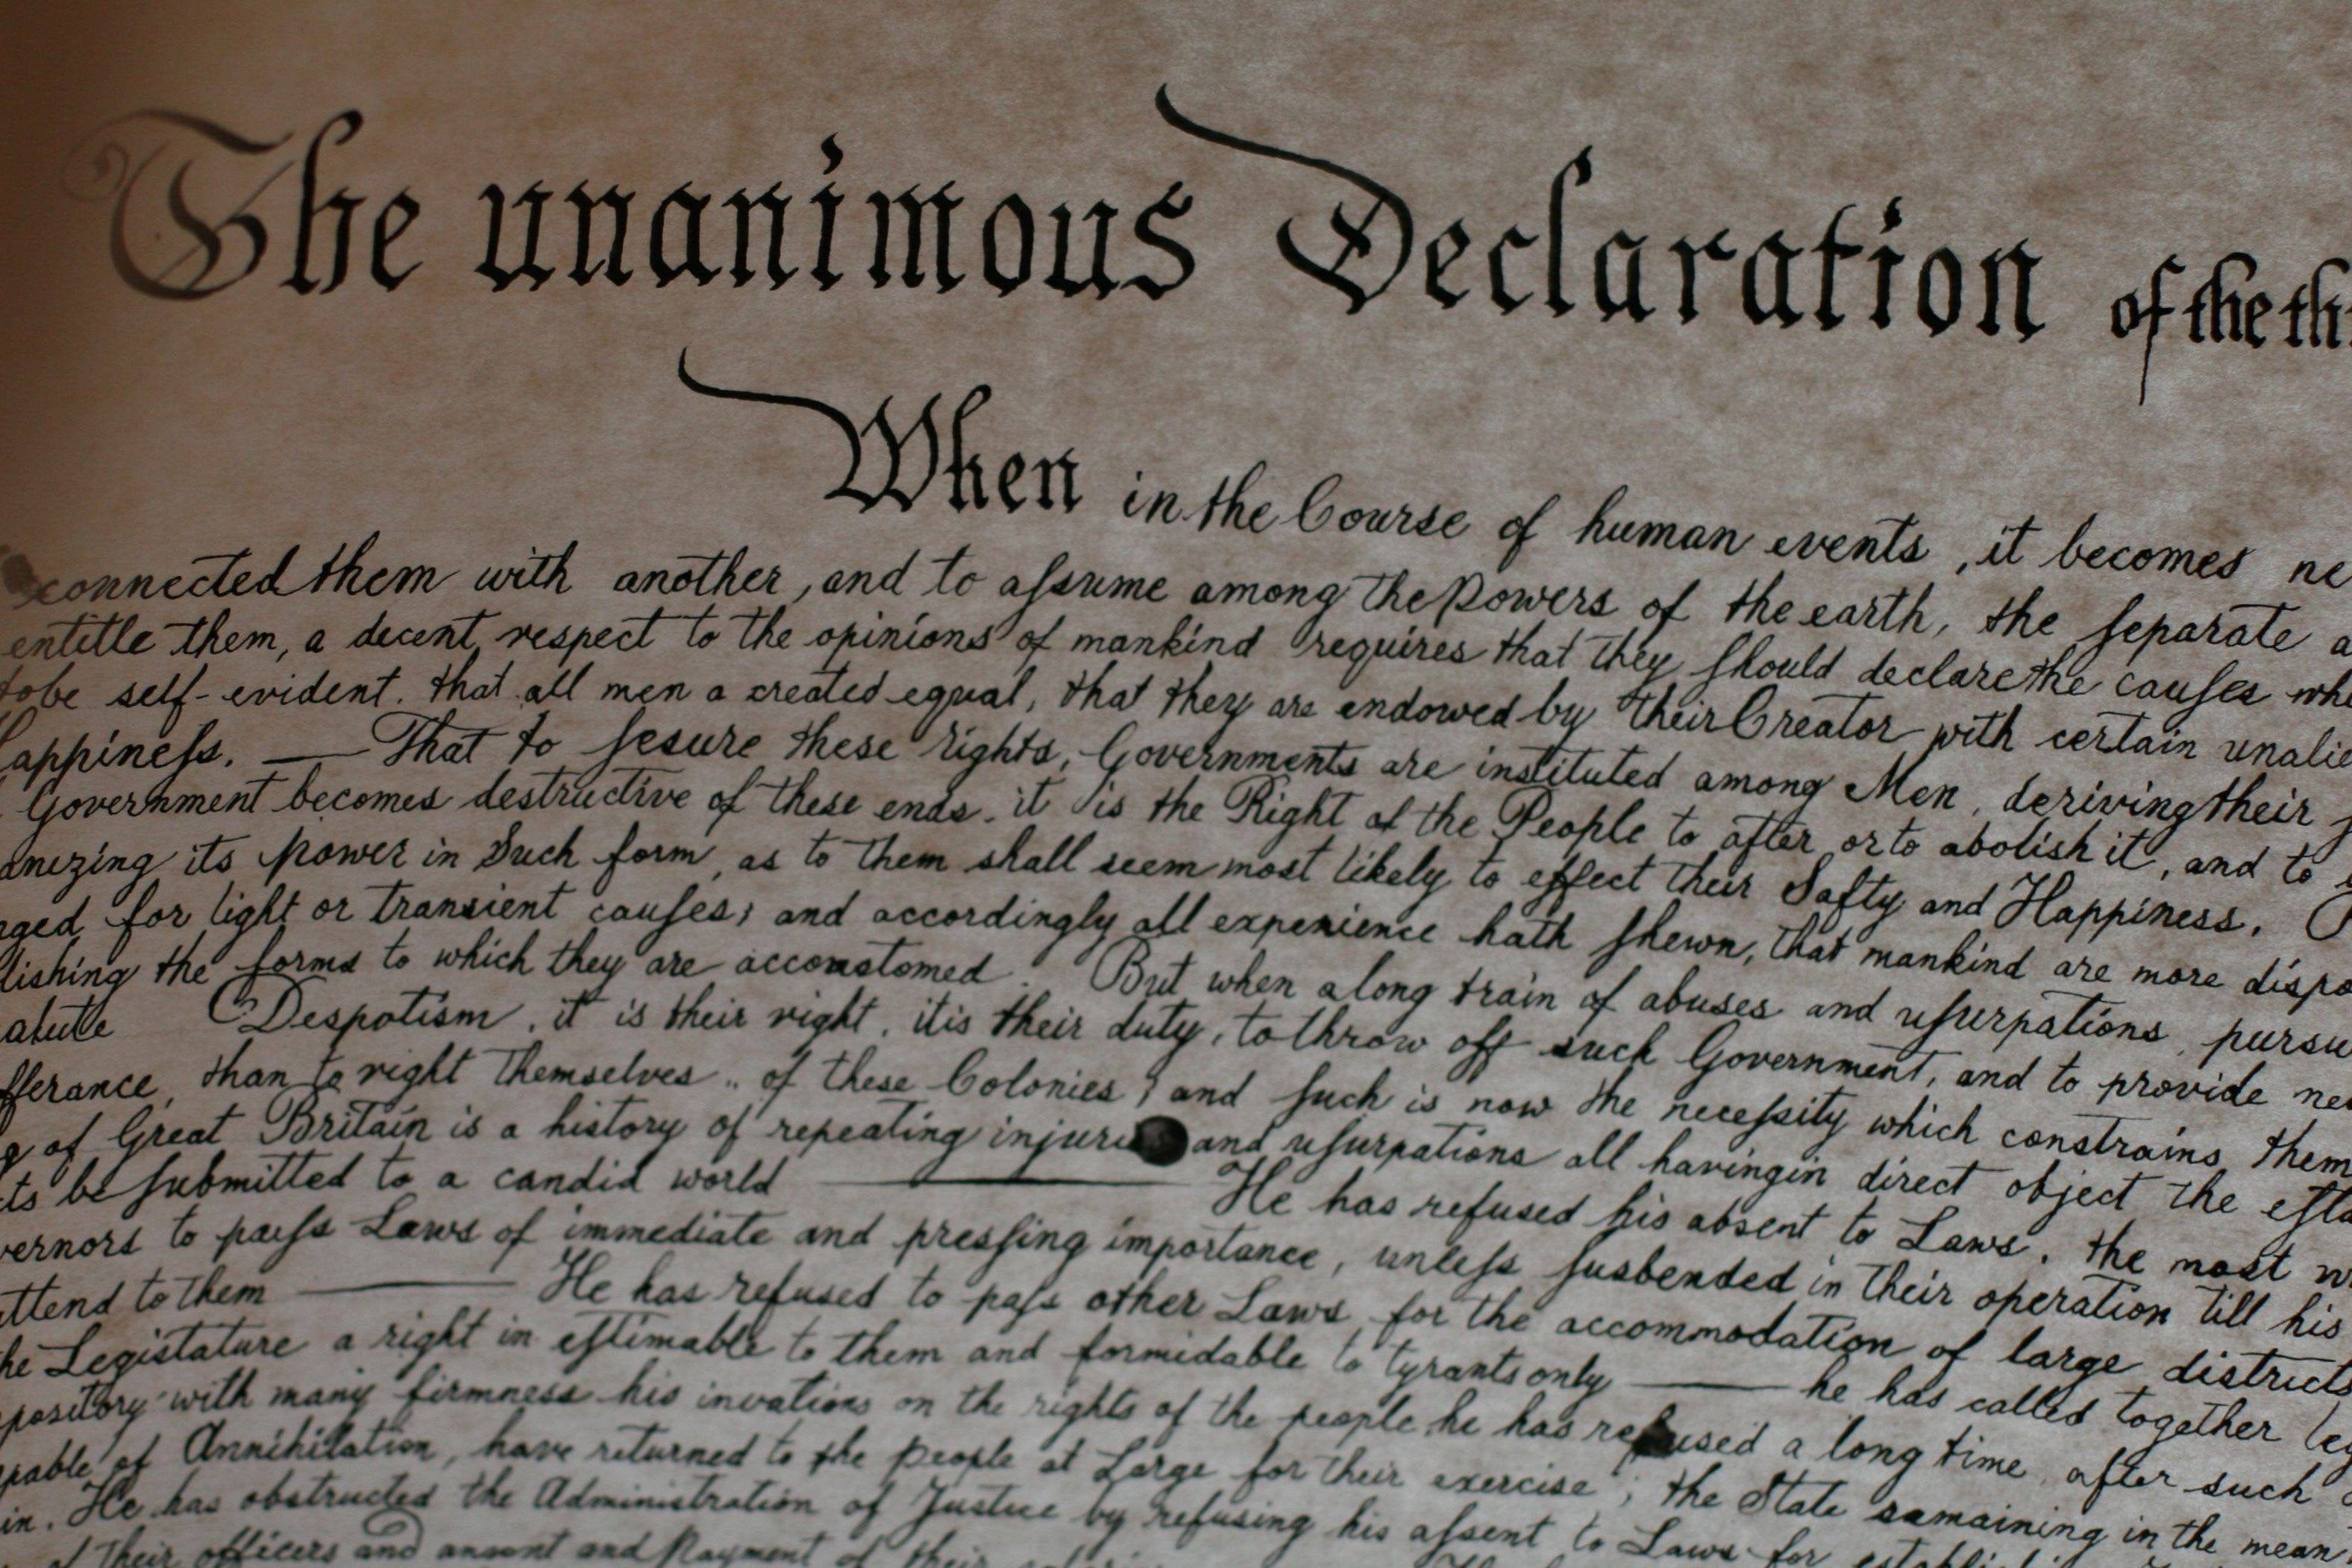 The unanimous Declaration of the th
When in the Course of human events, it becomes ne
connected them with another, and to aſsume among the powers of the earth, the ſeparate a
entitle them, a decent respect to the opinions of mankind requires that they ſhould declare the cauſes whi
to be self-evident. that all men a created equal, that they are endowed by their Creator with certain unalie
appineſs. — That to ſesure these rights, Governments are inſtituted among Men, deriving their j
Government becomes destructive of these ends. it is the Right of the People to after or to abolish it, and to
anizing its power in Such form, as to them shall seem most likely to effect their Safty and Happiness.
nged for light or transient cauſes; and accordingly all experience hath ſhewn, that mankind are more dispo
lishing the forms to which they are accoustomed. But when a long train of abuses and uſurpations, pursu
alute Despotism, it is their right, it is their duty, to throw off such Government, and to provide new
fferance, than to right themselves.. of these Colonies; and ſuch is now the neceſsity which constrains them
g of Great Britain is a history of repeating injuries and uſurpations all having in direct object the eſta
ts be ſubmitted to a candid world — He has refused his absent to Laws, the most w
vernors to paſs Laws of immediate and preſſing importance, unleſs ſusbended in their operation till his
attend to them — He has refused to paſs other Laws for the accommodation of large districts
he Legistature a right in eſtimable to them and formidable to tyrants only — he has called together leg
pository with many firmness his invations on the rights of the people he has refused a long time, after such
apable of Annihilation, have returned to the people at Large for their exercise; the State ramaining in the mean
in. He has obstructed the Administration of Justice by refusing his aſsent to Laws for establis
of their officers and amont and Payment of their